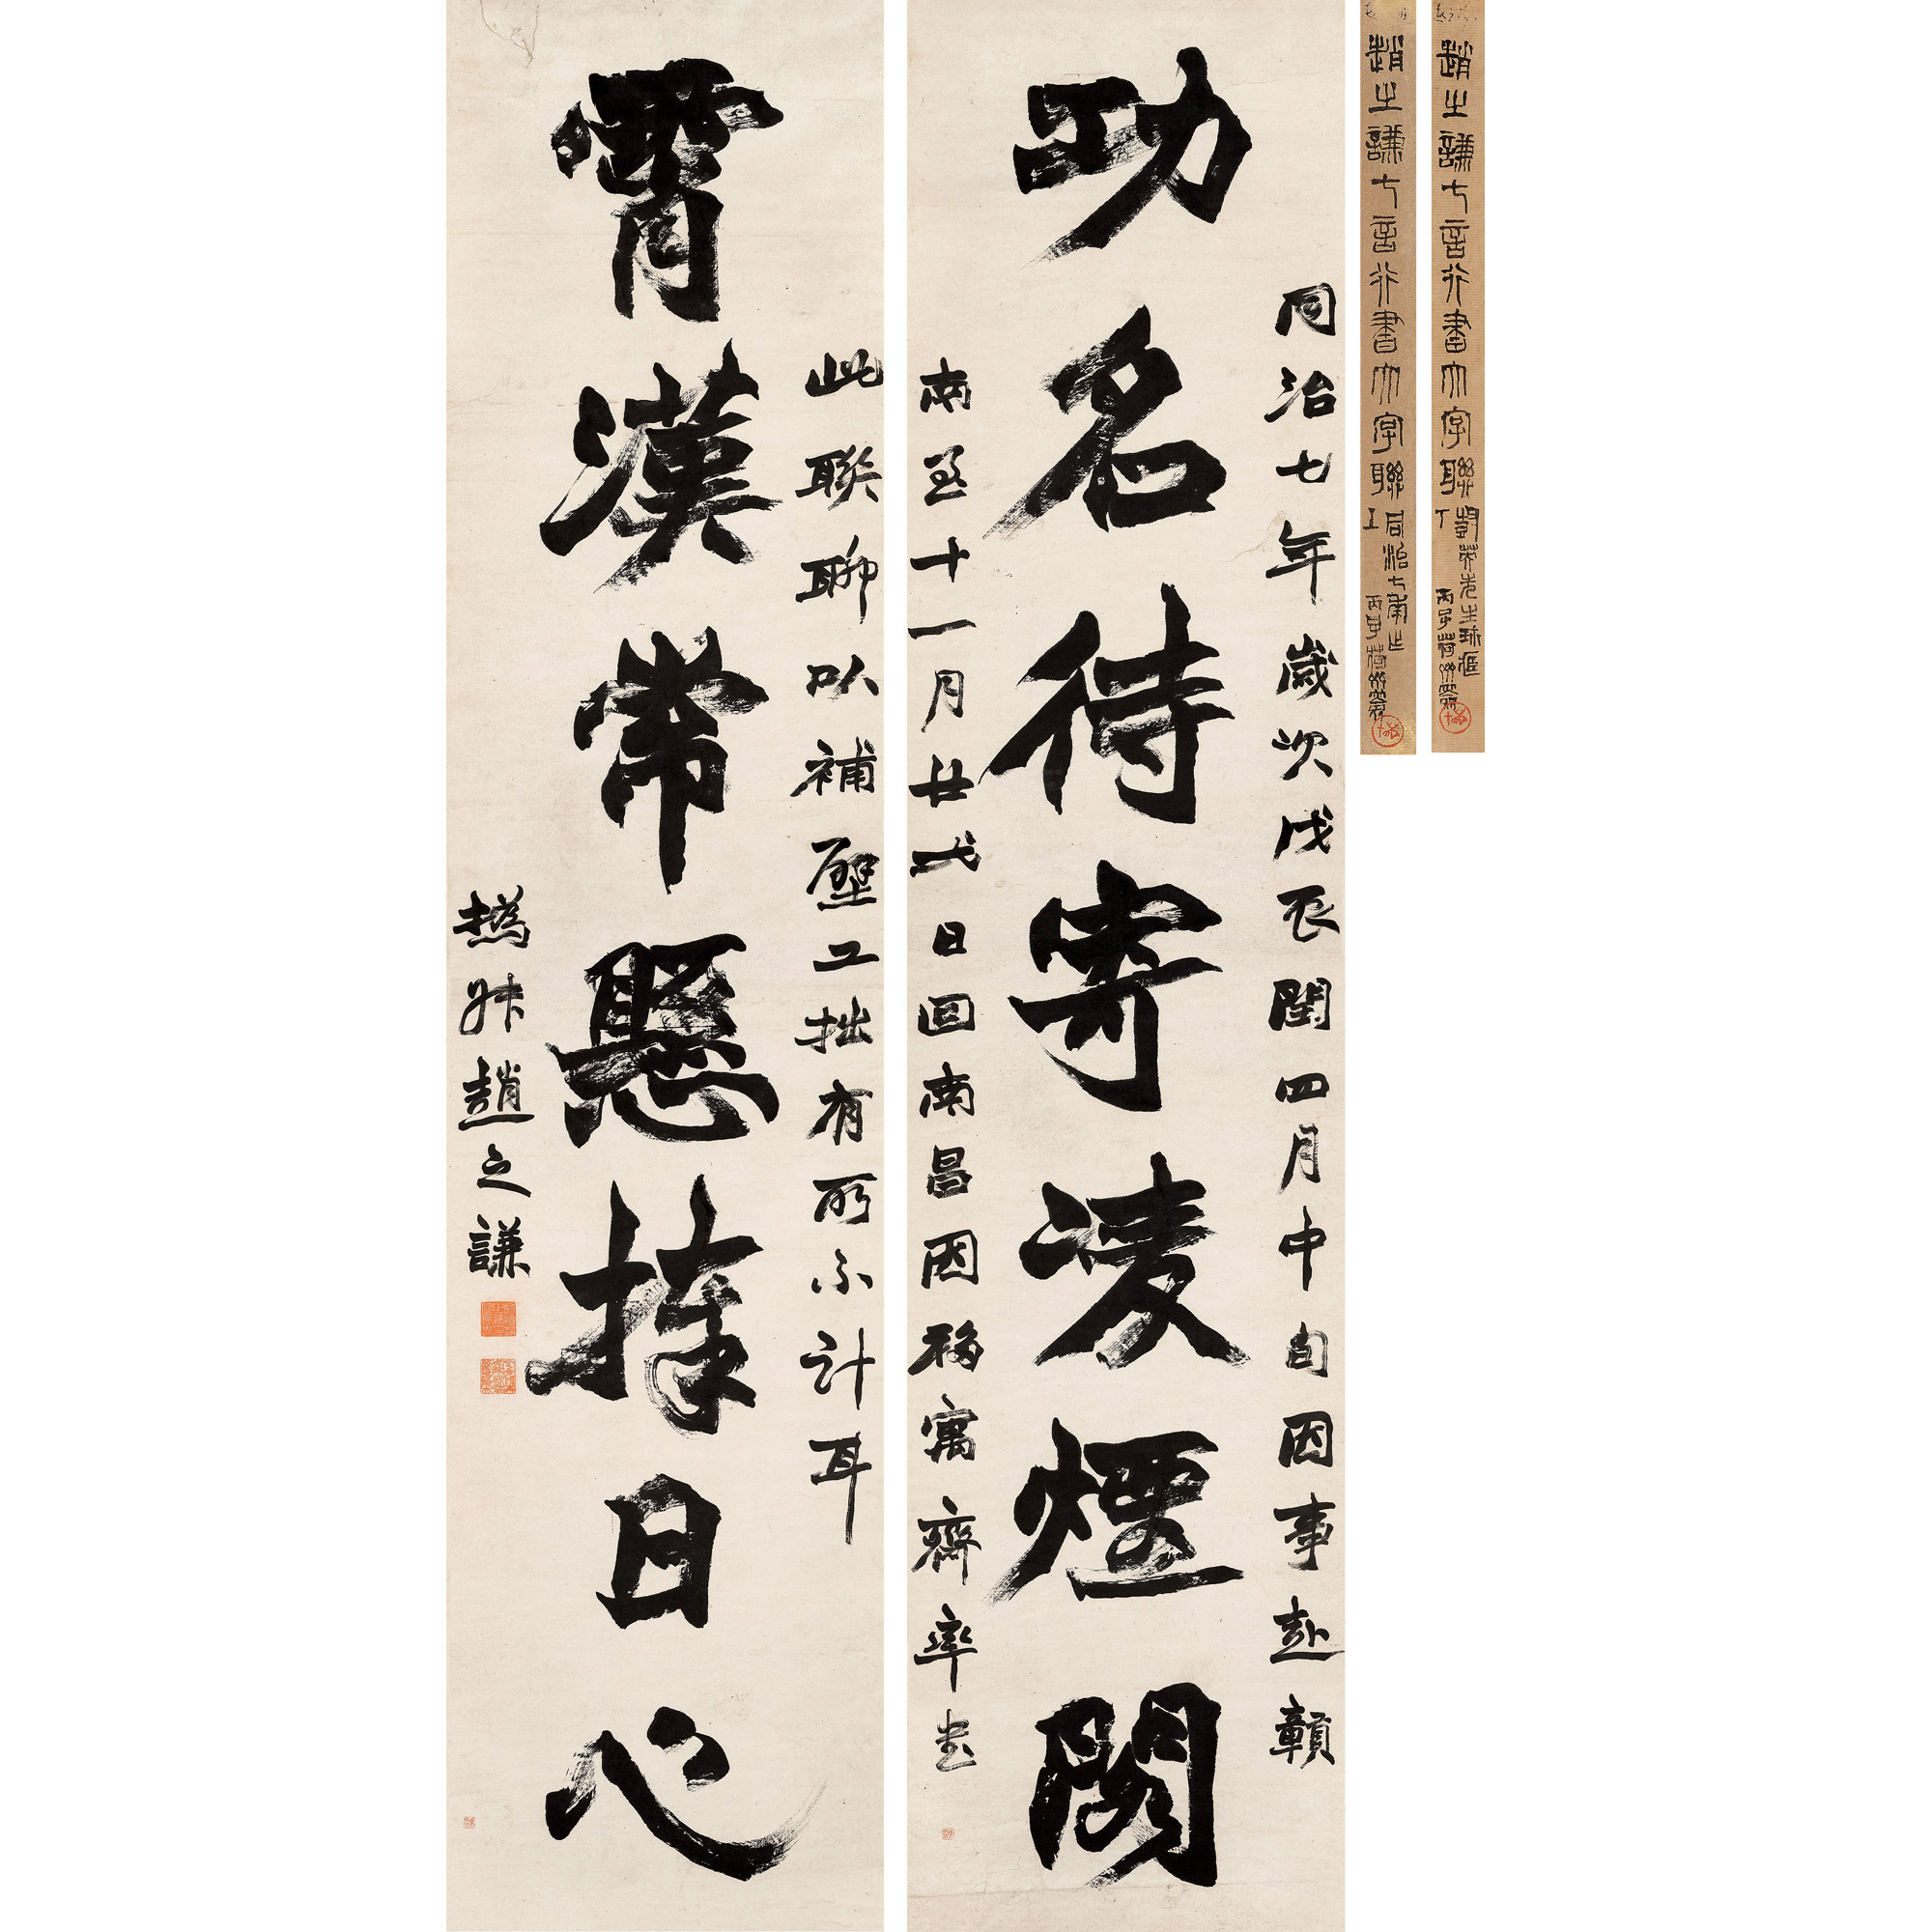 趙之謙七言行書大字聯上
同治七年作
趙之謙七言行書大字聯下
先生珍
同治七年歲次戊辰閏四月中旬因事赴贛
功名待寄凌煙閣
南至十一月廿弍日回南昌因移寓齊率書
此聯聊以補壁工拙有所不計耳
霄漢常懸捧日心
撝叔趙之謙